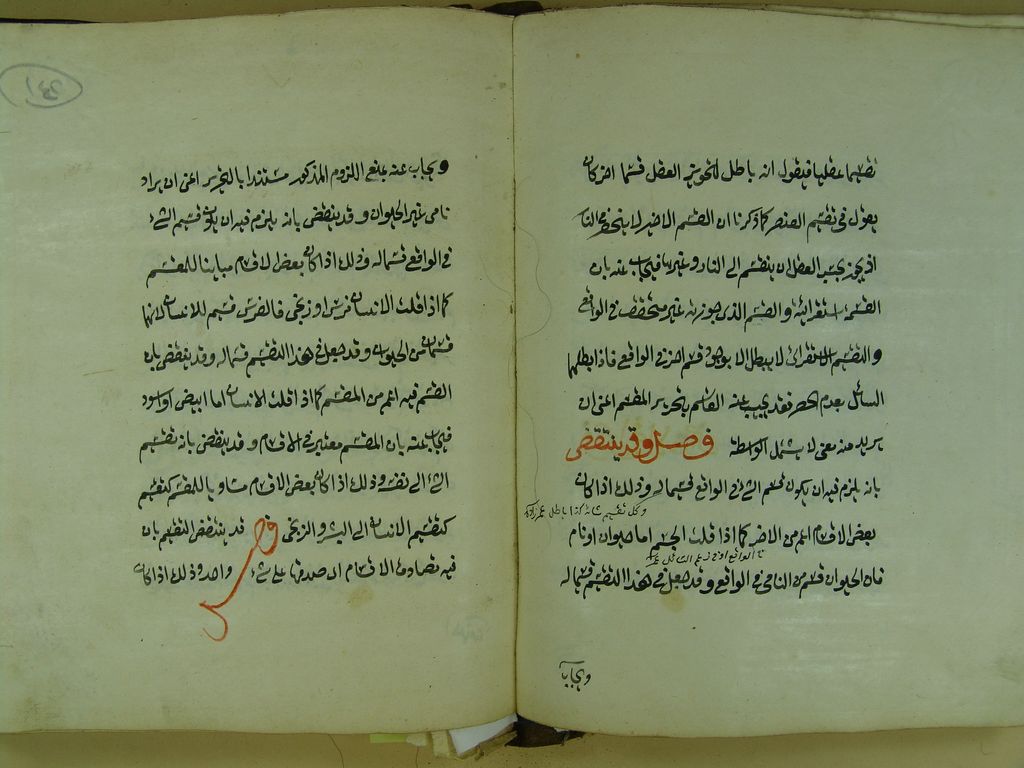 تقسيما عقليا فيقول انه باطل لتجويز العقل قسما اخر كان
يقول في تقسيم العنصر كما ذكرنا ان القسم الاخير لا ينحصر في النار
اذ يجوز العقل ان ينقسم الى النار وغيرها فيجاب عنه بان
القسمة استقرائية والقسم الذي جوزته غير متحقق في الواقع
والتقسيم الاستقرائي لا يبطل الا بوجود قسم اخر في الواقع فاذا ابطلها
السائل بعدم الحصر فقد يجيب عنه القاسم بتحرير المقسم اعني ان
يريد منه معنى لا يشمل الواسطة فصل وقد ينتقض
بانه يلزم فيه ان يكون قسم الشئ في الواقع قسيما له وذلك اذا كان
وكل تقسيم شانه كذا باطل
بعض الاقسام اعم من الاخر كما اذا قلت الجسم اما حيوان او نام
فان الحيوان قسم من النامي في الواقع وقد جعل في هذا التقسيم قسيما له
ويجاب
ويجاب عنه بمنع اللزوم المذكور مستندا بالتحرير اعني ان يراد
نامي غير الحيوان وقد ينتقض بانه يلزم فيه ان يكون قسيم الشئ
في الواقع قسما له وذلك اذا كان بعض الاقسام مباينا للمقسم
كما اذا قلت الانسان فرس او زنجي فالفرس قسيم للانسان لانهما
قسمان من الحيوان وقد جعل في هذا التقسيم قسما له وقد ينتقض بان
القسم فيه اعم من المقسم كما اذا قلت الانسان اما ابيض او اسود
فيجاب عنه بان المقسم معتبر في الاقسام وقد ينتقض بانه تقسيم
الشئ الى نفسه وذلك اذا كان بعض الاقسام مساويا للمقسم كتقسيم
كتقسيم الانسان الى البشر والزنجي فصل قد ينتقض التقسيم بان
فيه تصادق الاقسام اي صدقها على شئ واحد وذلك اذا كان